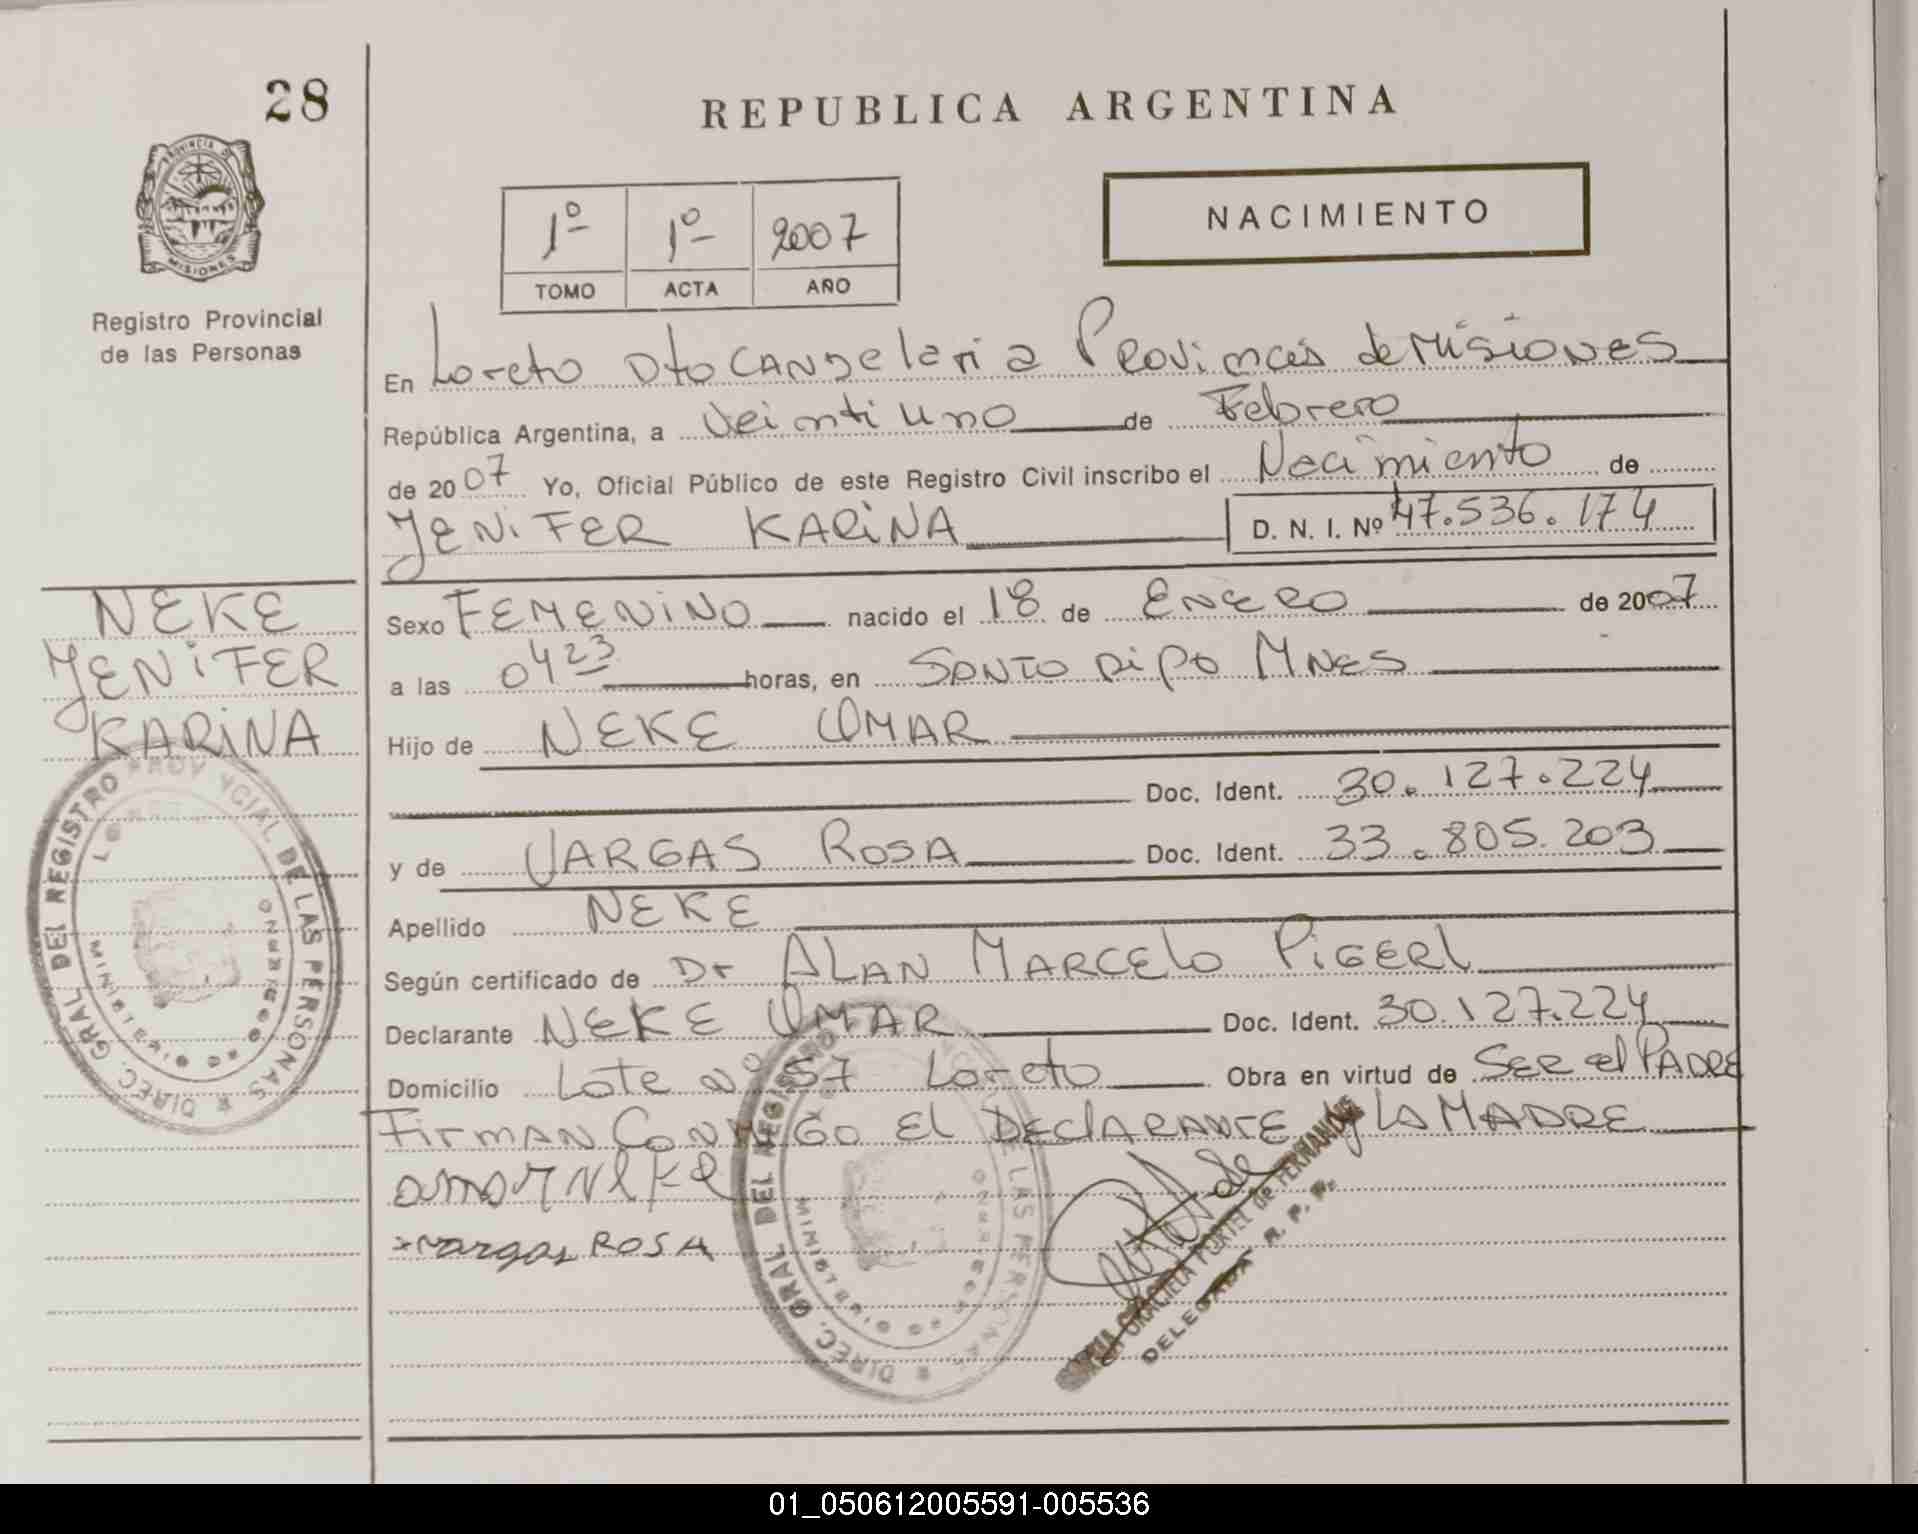 28
REPUBLICA ARGENTINA
PROVINCIA DE
MISIONES
Registro Provincial
de las Personas
1º 1º 2007
TOMO ACTA AÑO
NACIMIENTO
En Loreto Dto CANDelaria Provincia de Misiones
República Argentina, a Veintiuno de Febrero
de 2007 Yo, Oficial Público de este Registro Civil inscribo el Nacimiento de
JENIFER KARINA D. N. I. Nº 47.536.174
NEKE
JENIFER
KARINA
Sexo FEMENINO nacido el 18 de ENERO de 2007
a las 0423 horas, en SANTO PIPO MNES
Hijo de NEKE OMAR
Doc. Ident. 30.127.224
y de VARGAS ROSA Doc. Ident. 33.805.203
Apellido NEKE
Según certificado de Dr ALAN MARCELO PIGERL
Declarante NEKE OMAR Doc. Ident. 30.127.224
Domicilio Lote Nº 57 Loreto Obra en virtud de SER el PADRE
FIRMAN CONMIGO El DEClARANTE y LA MADRE
omar NeKe
vargas ROSA
DIREC. GRAL DEL REGISTRO PROVINCIAL DE LAS PERSONAS
MINISTERIO DE GOBIERNO
LORETO
DIREC. GRAL DEL REGISTRO
LAS PERSONAS
MINISTERIO DE GOBIERNO
GRACIELA PORTEL de FERNANDEZ
DELEGADA R. P. P.
01_050612005591-005536